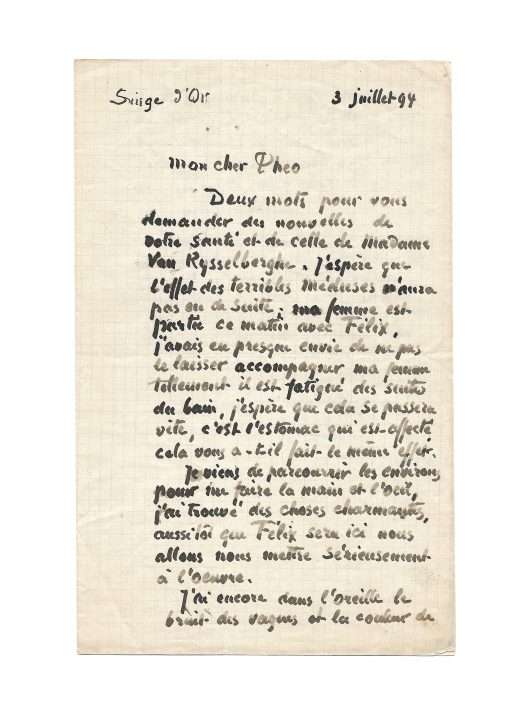 Singe d'Or
3 juillet 94
mon cher Theo
Deux mots pour vous
demander des nouvelles de
votre santé et de celle de Madame
Van Rysselberghe. J'espère que
l'effet des terribles méduses n'aura
pas eu de suite, ma femme est
partie ce matin avec Félix,
j'avais eu presque envie de ne pas
le laisser accompagner ma femme
tellement il est fatigué des suites
du bain, j'espère que cela se passera
vite, c'est l'estomac qui est affecté
cela vous a-t-il fait le même effet.
Je viens de parcourrir les environs
pour me faire la main et l'oeil,
j'ai trouvé des choses charmantes,
aussitôt que Félix sera ici nous
allons nous mettre sérieusement
à l'oeuvre.
J'ai encore dans l'oreille le
bruit des vagues et la couleur de